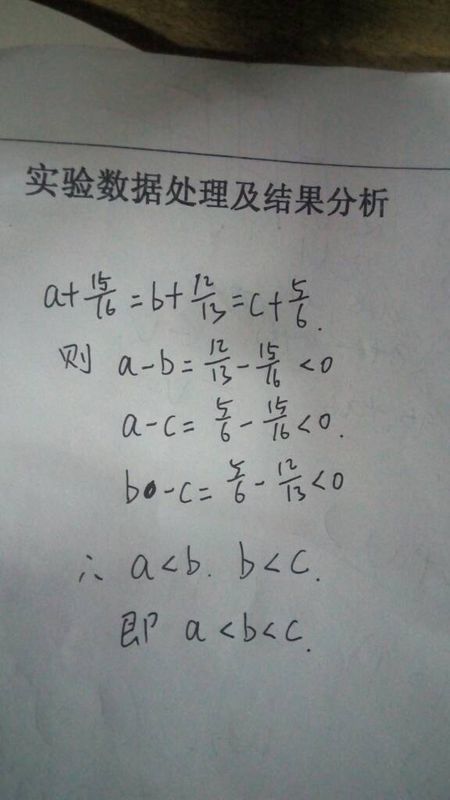 实验数据处理及结果分析
a+15/16=b+12/13=c+5/6.
则 a-b=12/13-15/16<0
a-c=5/6-15/16<0.
b-c=5/6-12/13<0
∴ a<b. b<c.
即 a<b<c.